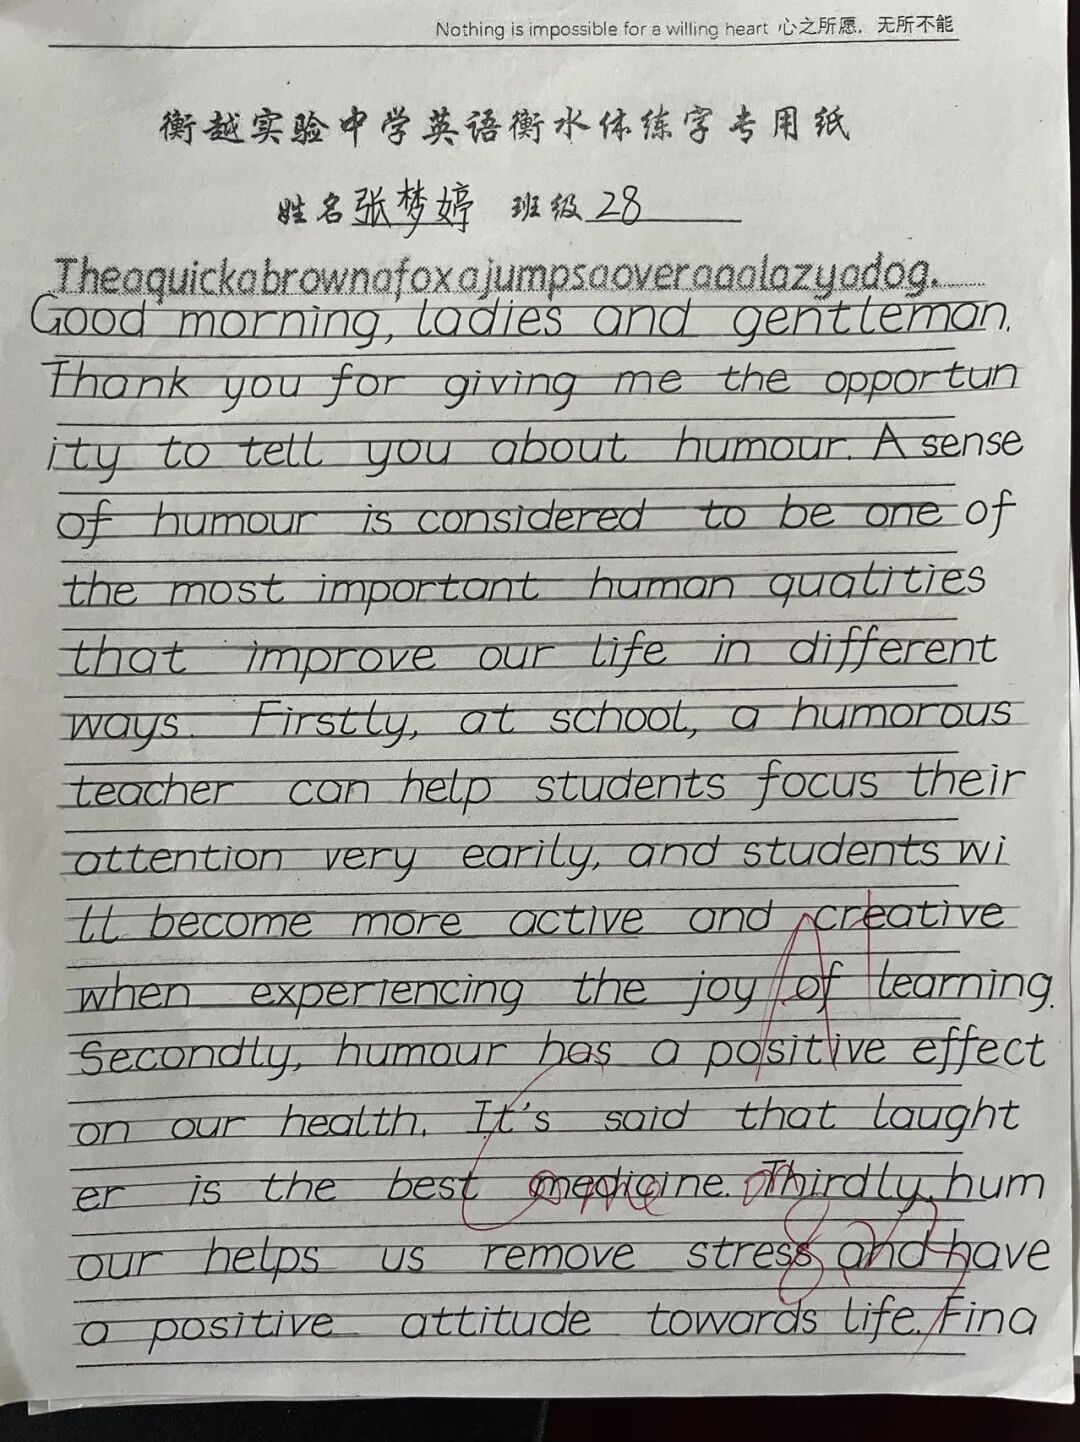 Nothing is impossible for a willing heart 心之所愿，无所不能
衡越实验中学英语衡水体练字专用纸
姓名 张梦婷 班级 28
Theaquickabrownafoxajumpsaoveraaalazyadog.
Good morning, ladies and gentleman.
Thank you for giving me the opportun
ity to tell you about humour. A sense
of humour is considered to be one of
the most important human qualities
that improve our life in different
ways. Firstly, at school, a humorous
teacher can help students focus their
attention very earily, and students wi
ll become more active and creative
when experiencing the joy of learning.
Secondly, humour has a positive effect
on our health. It's said that laught
er is the best medicine. Thirdly, hum
our helps us remove stress and have
a positive attitude towards life. Fina